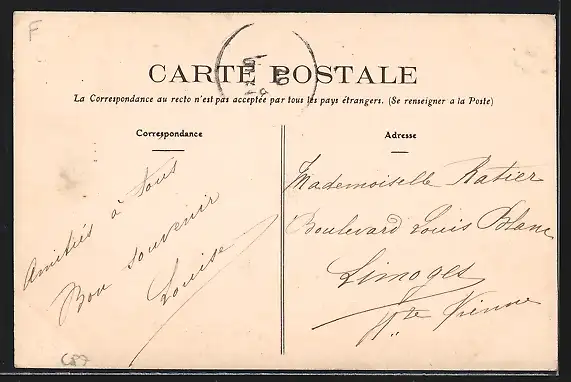 F
CARTE POSTALE
La Correspondance au recto n'est pas acceptée par tous les pays étrangers. (Se renseigner a la Poste)
Correspondance
Amitiés à Tous
Bon souvenir
Louise
Adresse
Mademoiselle Ratier
Boulevard Louis Blanc
Limoges
Hte Vienne